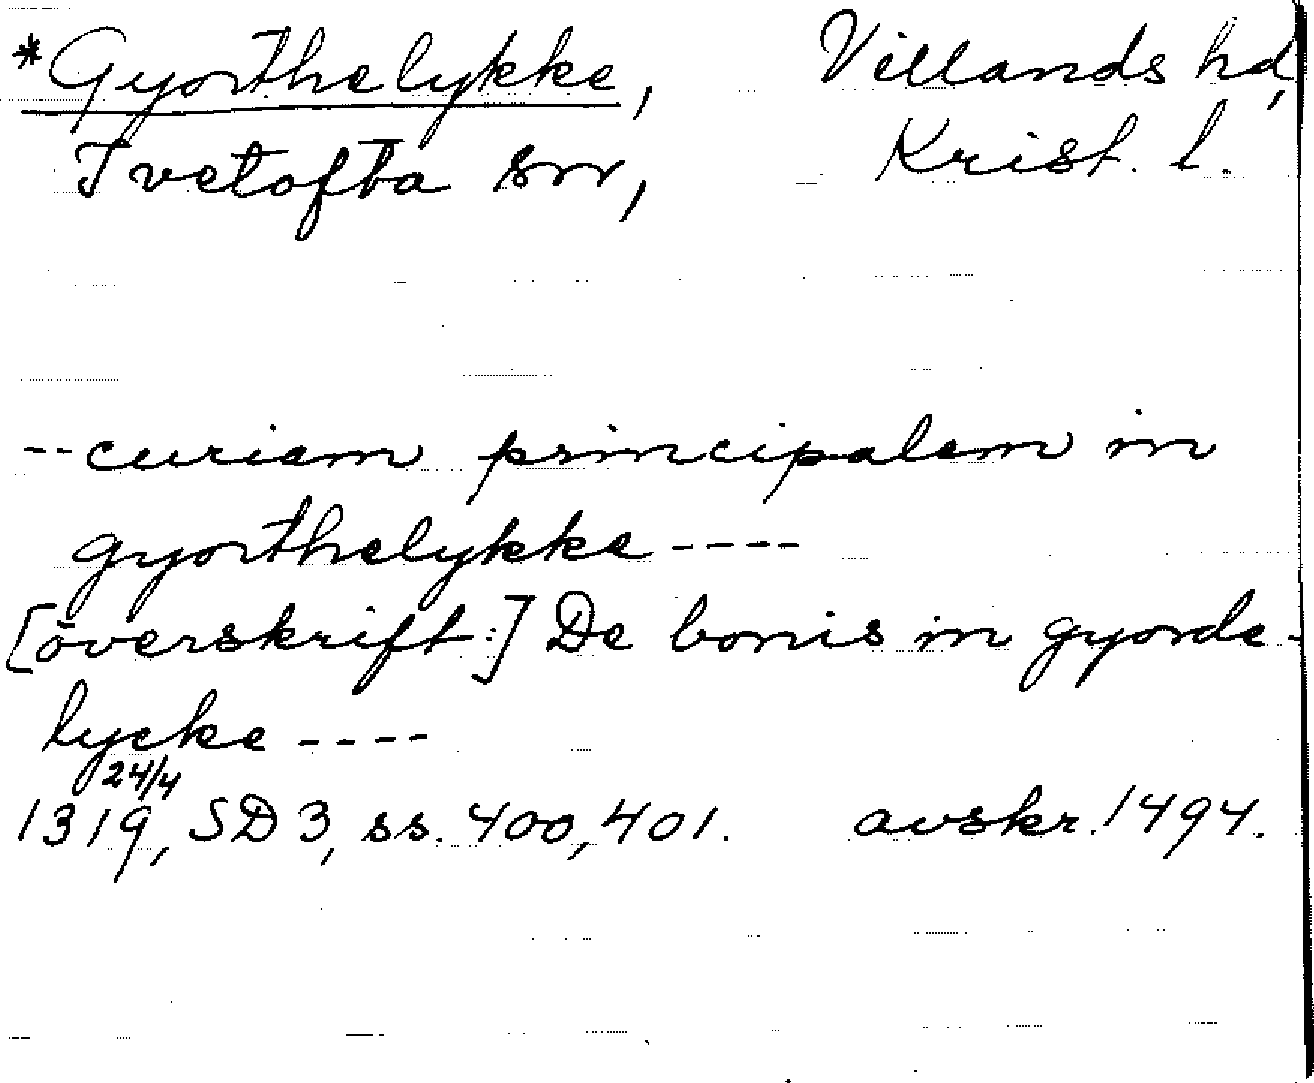 *Gyorthelykke, Villands hd,
Tvetofta sn, Krist. l.
--curiam principalem in
gyorthelykke----
[överskrift:] De bonis in gyorde-
lycke----
1319 24/4, SD 3, ss. 400, 401. avskr. 1494.